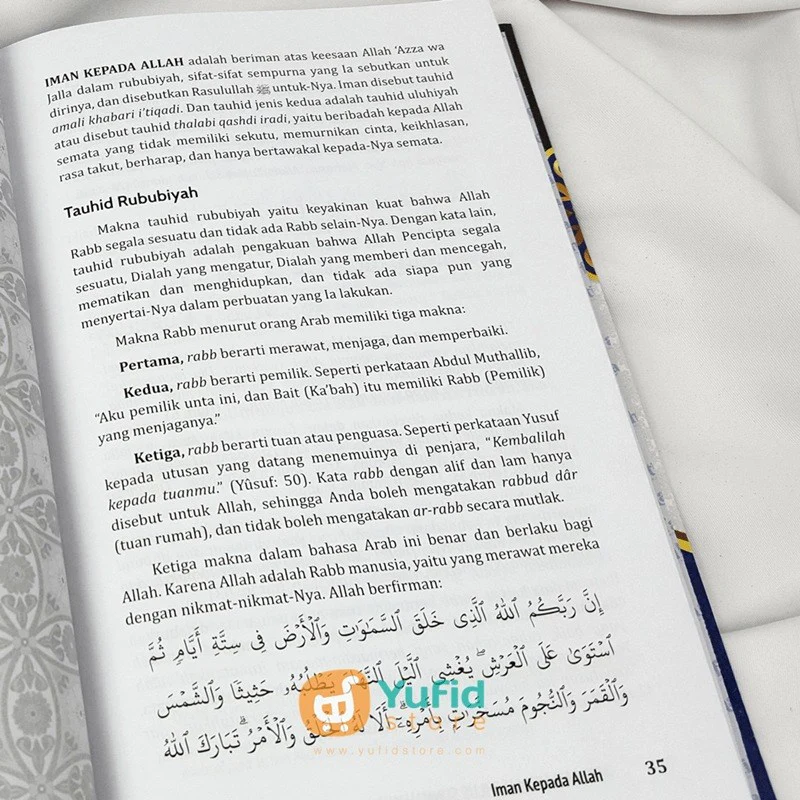 IMAN KEPADA ALLAH adalah beriman atas keesaan Allah 'Azza wa
Jalla dalam rububiyah, sifat-sifat sempurna yang Ia sebutkan untuk
dirinya, dan disebutkan Rasulullah ﷺ untuk-Nya. Iman disebut tauhid
amali khabari i'tiqadi. Dan tauhid jenis kedua adalah tauhid uluhiyah
atau disebut tauhid thalabi qashdi iradi, yaitu beribadah kepada Allah
semata yang tidak memiliki sekutu, memurnikan cinta, keikhlasan,
rasa takut, berharap, dan hanya bertawakal kepada-Nya semata.
Tauhid Rububiyah
Makna tauhid rububiyah yaitu keyakinan kuat bahwa Allah
Rabb segala sesuatu dan tidak ada Rabb selain-Nya. Dengan kata lain,
tauhid rububiyah adalah pengakuan bahwa Allah Pencipta segala
sesuatu, Dialah yang mengatur, Dialah yang memberi dan mencegah,
mematikan dan menghidupkan, dan tidak ada siapa pun yang
menyertai-Nya dalam perbuatan yang Ia lakukan.
Makna Rabb menurut orang Arab memiliki tiga makna:
Pertama, rabb berarti merawat, menjaga, dan memperbaiki.
Kedua, rabb berarti pemilik. Seperti perkataan Abdul Muthallib,
"Aku pemilik unta ini, dan Bait (Ka'bah) itu memiliki Rabb (Pemilik)
yang menjaganya."
Ketiga, rabb berarti tuan atau penguasa. Seperti perkataan Yusuf
kepada utusan yang datang menemuinya di penjara, "Kembalilah
kepada tuanmu." (Yûsuf: 50). Kata rabb dengan alif dan lam hanya
disebut untuk Allah, sehingga Anda boleh mengatakan rabbud dâr
(tuan rumah), dan tidak boleh mengatakan ar-rabb secara mutlak.
Ketiga makna dalam bahasa Arab ini benar dan berlaku bagi
Allah. Karena Allah adalah Rabb manusia, yaitu yang merawat mereka
dengan nikmat-nikmat-Nya. Allah berfirman:
إِنَّ رَبَّكُمُ ٱللَّهُ ٱلَّذِى خَلَقَ ٱلسَّمَٰوَٰتِ وَٱلْأَرْضَ فِى سِتَّةِ أَيَّامٍ ثُمَّ
ٱسْتَوَىٰ عَلَى ٱلْعَرْشِ ۖ يُغْشِى ٱلَّيْلَ ٱلنَّهَارَ يَطْلُبُهُۥ حَثِيثًا وَٱلشَّمْسَ
وَٱلْقَمَرَ وَٱلنُّجُومَ مُسَخَّرَٰتٍۭ بِأَمْرِهِۦٓ ۗ أَلَا لَهُ ٱلْخَلْقُ وَٱلْأَمْرُ ۗ تَبَارَكَ ٱللَّهُ
Yufid
store
www.yufidstore.com
Iman Kepada Allah 35